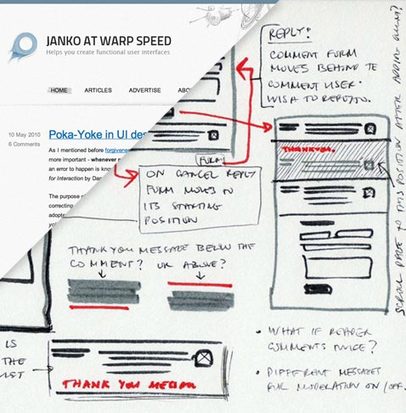 JANKO AT WARP SPEED
Helps you create functional user interfaces
HOME ARTICLES ADVERTISE ABOUT
10 May 2010
6 Comments
Poka-Yoke in UI des
As I mentioned before forgiven
more important - whenever
an error to happen is know
for Interaction by Dan
The purpose
correcting
adopte
REPLY:
COMMENT FORM
MOVES BEHIND TE
COMMENT USER
WISH TO REPLY TO.
THANK YOU.
FORM
ON CANCEL REPLY
FORM MOVES IN
ITS STARTING
POSITION
THANK YOU MESSAGE BELOW THE
COMMENT? OR ABOVE?
SCROLL PAGE TO THIS POSITION AFTER ADDING
IS
THE
THANK YOU MESSAGE
• WHAT IF READER
COMMENTS TWICE?
• DIFFERENT MESSAGES
FOR MODERATION ON/OFF.